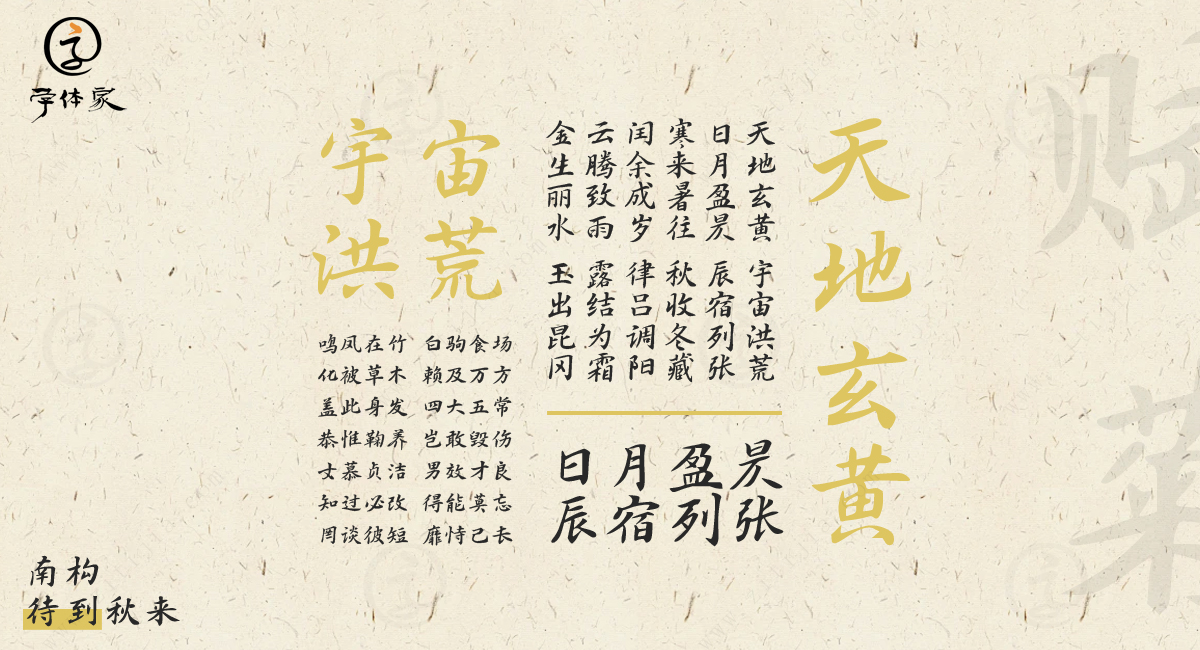 字
字体家
天地玄黄
天地玄黄 宇宙洪荒
日月盈昃 辰宿列张
寒来暑往 秋收冬藏
闰余成岁 律吕调阳
云腾致雨 露结为霜
金生丽水 玉出昆冈
日月盈昃
辰宿列张
宇宙
洪荒
鸣凤在竹 白驹食场
化被草木 赖及万方
盖此身发 四大五常
恭惟鞠养 岂敢毁伤
女慕贞洁 男效才良
知过必改 得能莫忘
罔谈彼短 靡恃己长
南构
待到秋来